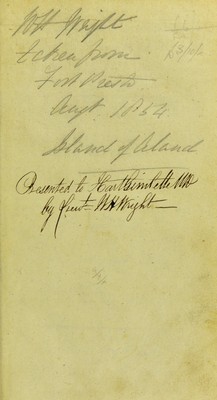 WH Wright
taken from
Fort Presto
Augt 1854
Island of Aland
Presented to
by Lieut WH Wright